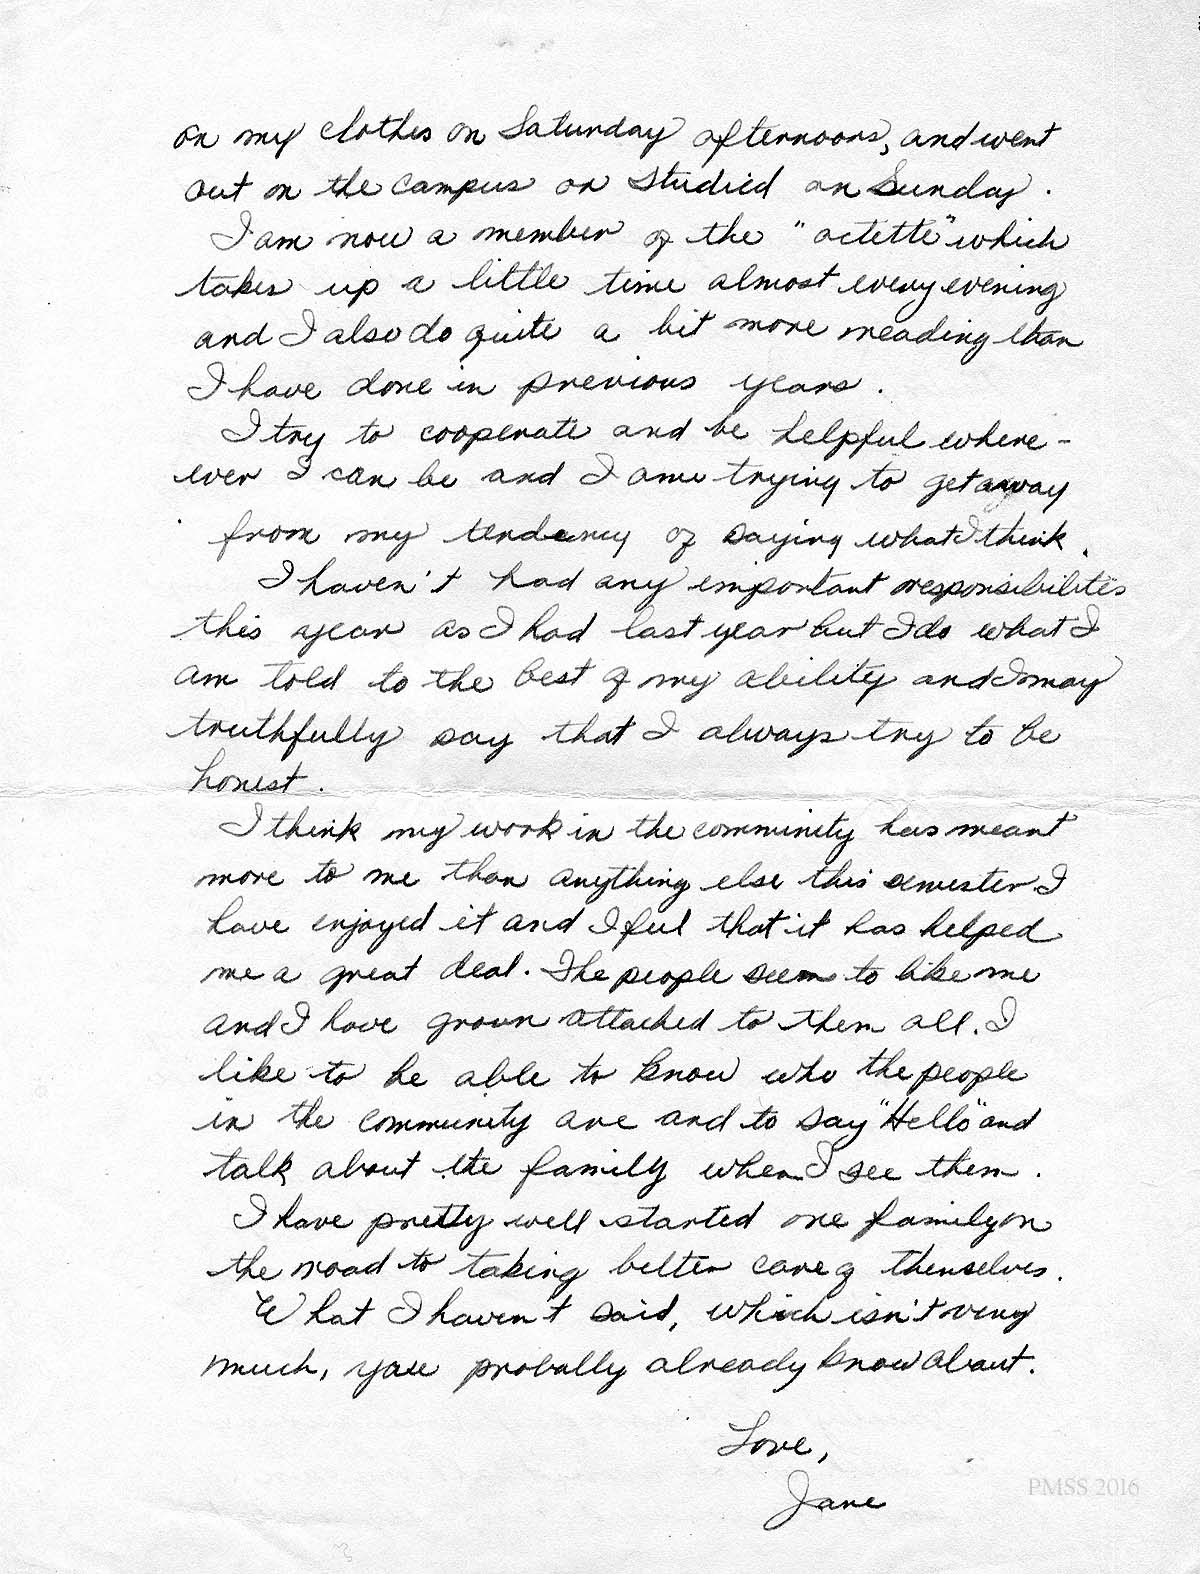 on my clothes on Saturday afternoons, and went
out on the campus or studied on Sunday.
I am now a member of the "octette" which
takes up a little time almost every evening
and I also do quite a bit more reading than
I have done in previous years.
I try to cooperate and be helpful where-
ever I can be and I am trying to get away
from my tendency of saying what I think.
I haven't had any important responsibilities
this year as I had last year but I do what I
am told to the best of my ability and I may
truthfully say that I always try to be
honest.
I think my work in the community has meant
more to me than anything else this semester I
have enjoyed it and I feel that it has helped
me a great deal. The people seem to like me
and I have grown attached to them all. I
like to be able to know who the people
in the community are and to say "Hello" and
talk about the family when I see them.
I have pretty well started one family on
the road to taking better care of themselves.
What I haven't said, which isn't very
much, you probally already know about.
Love,
Jane
PMSS 2016